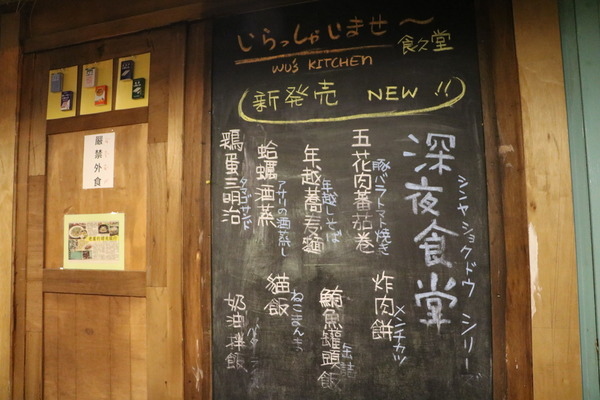 いらっしゃいませ～
食堂
WU'S KITCHEN
新発売 NEW !!
深夜食堂
シンヤ ショクドウ シリーズ
五花肉蕃茄巻
豚バラトマト焼き
年越蕎麦麵
年越しそば
蛤蠣酒蒸
アサリの酒蒸し
鶏蛋三明治
タマゴサンド
炸肉餅
メンチカツ
鮪魚罐頭飯
缶詰
貓飯
ねこまんま
奶油拌飯
嚴禁外食